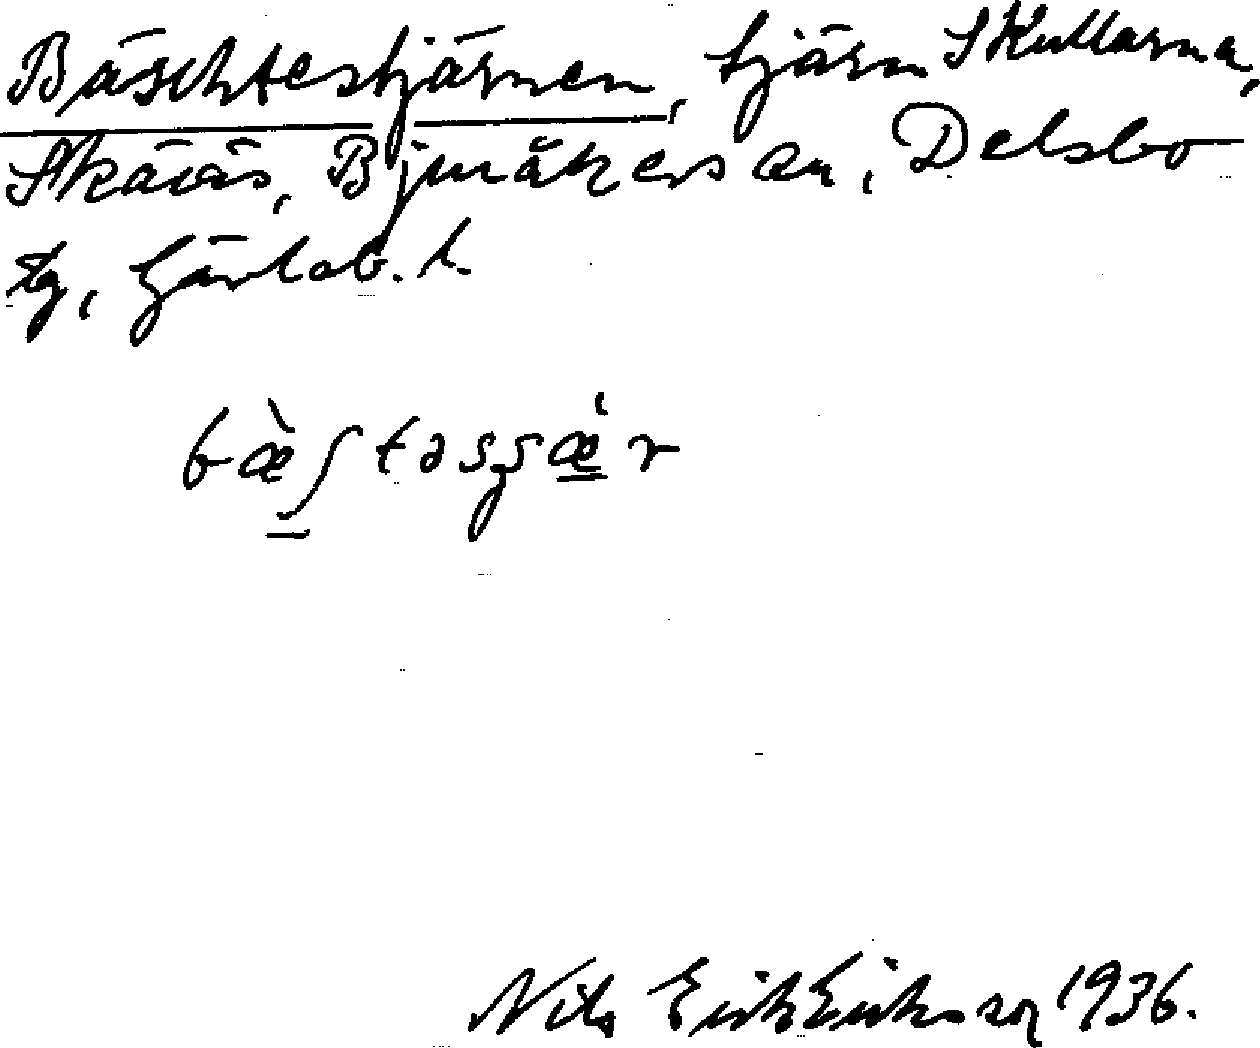 Bäschtestjärnen, tjärn SKullarna,
Skäväs, Bjuråkers sn, Delsbo
tg, Gävleb. l.
bæ̀ʃtəsʂæ̀r
Nils Erik Eriksson 1936.